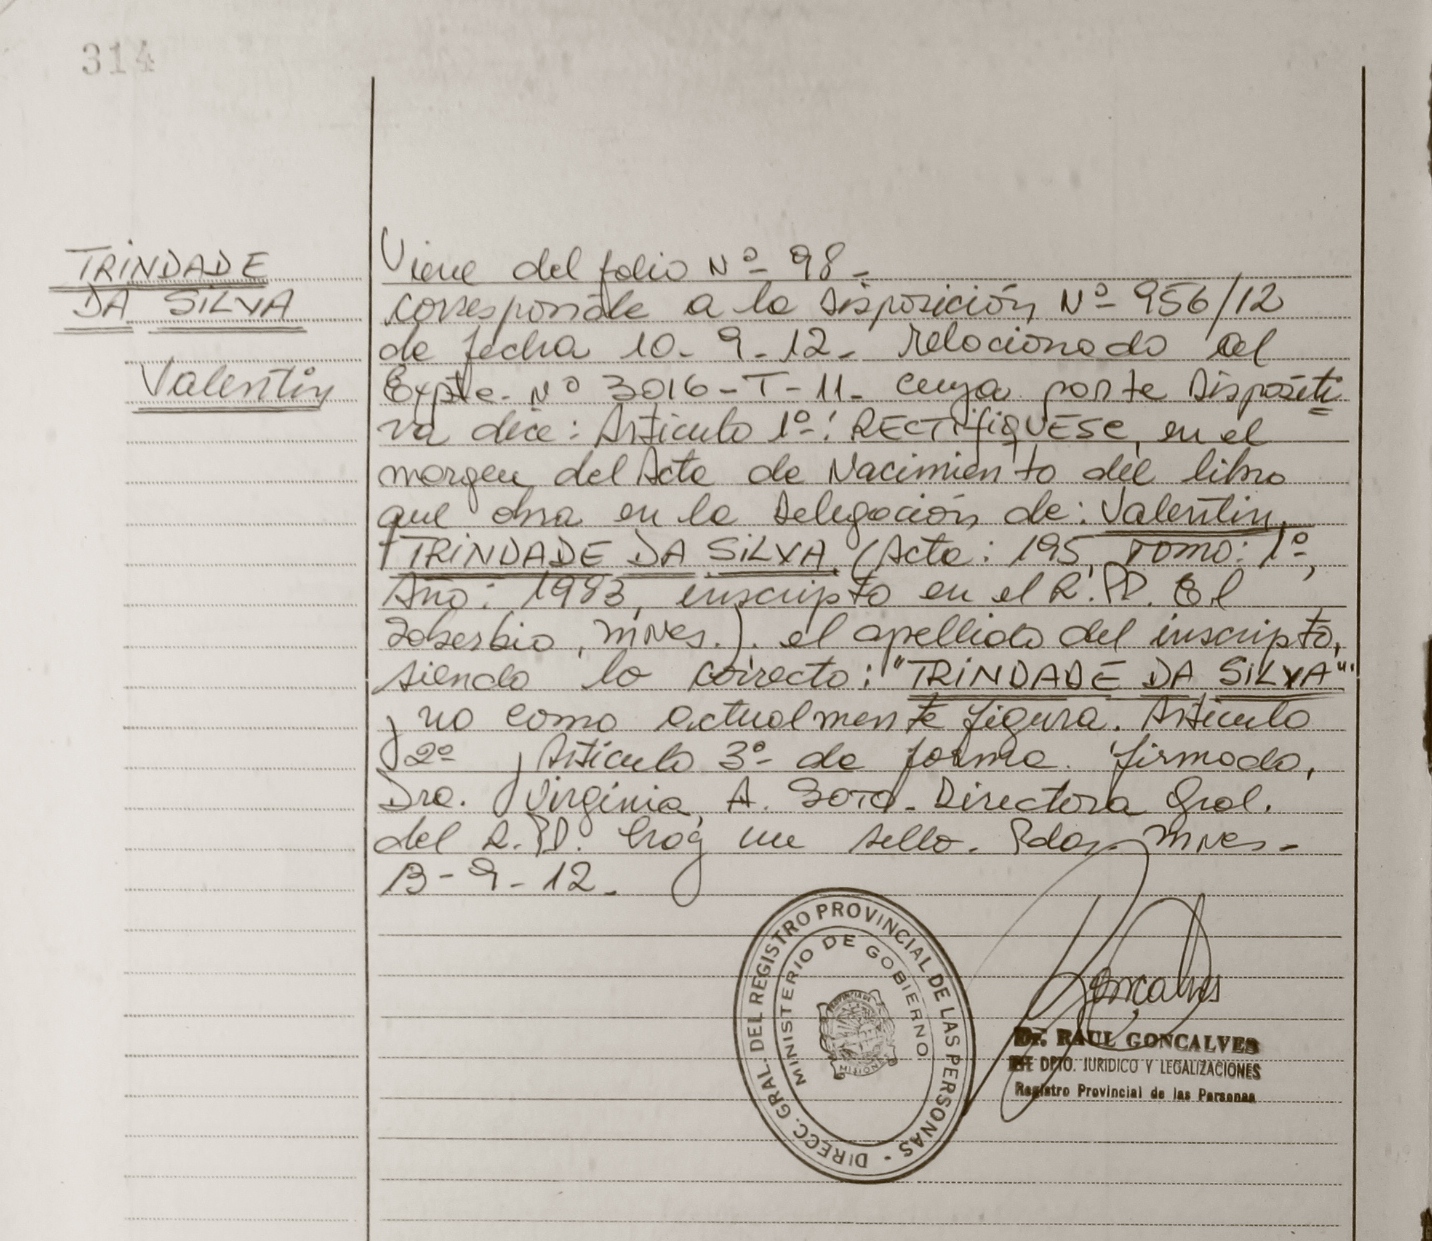 314
TRINDADE
DA SILVA
Valentin
Viene del folio Nº 98-
corresponde a la Disposición Nº 956/12
de fecha 10-9-12- relacionado al
Expte. Nº 3016-T-11- cuya parte Dispositi
va dice: Artículo 1º: RECTIFIQUESE, en el
margen del Acta de Nacimiento del libro
que obra en la Delegación de: Valentin,
TRINDADE DA SILVA, (Acta: 195, Tomo: 1º,
Año: 1983, inscripto en el R.PP. El
Soberbio, MNES.). el apellido del inscripto,
siendo lo correcto: "TRINDADE DA SILVA"
y no como actualmente figura. Artículo
2º y Artículo 3º de forma. firmado,
Dra. Virginia A. SOTO- Directora Gral.
del R.PP. hay un sello. Pdas. MNES-
13-9-12.
DIRECC. GRAL. DEL REGISTRO PROVINCIAL DE LAS PERSONAS -
MINISTERIO DE GOBIERNO
MISIONES
Goncalves
Dr. RAUL GONCALVES
JEFE DPTO. JURIDICO Y LEGALIZACIONES
Registro Provincial de las Personas